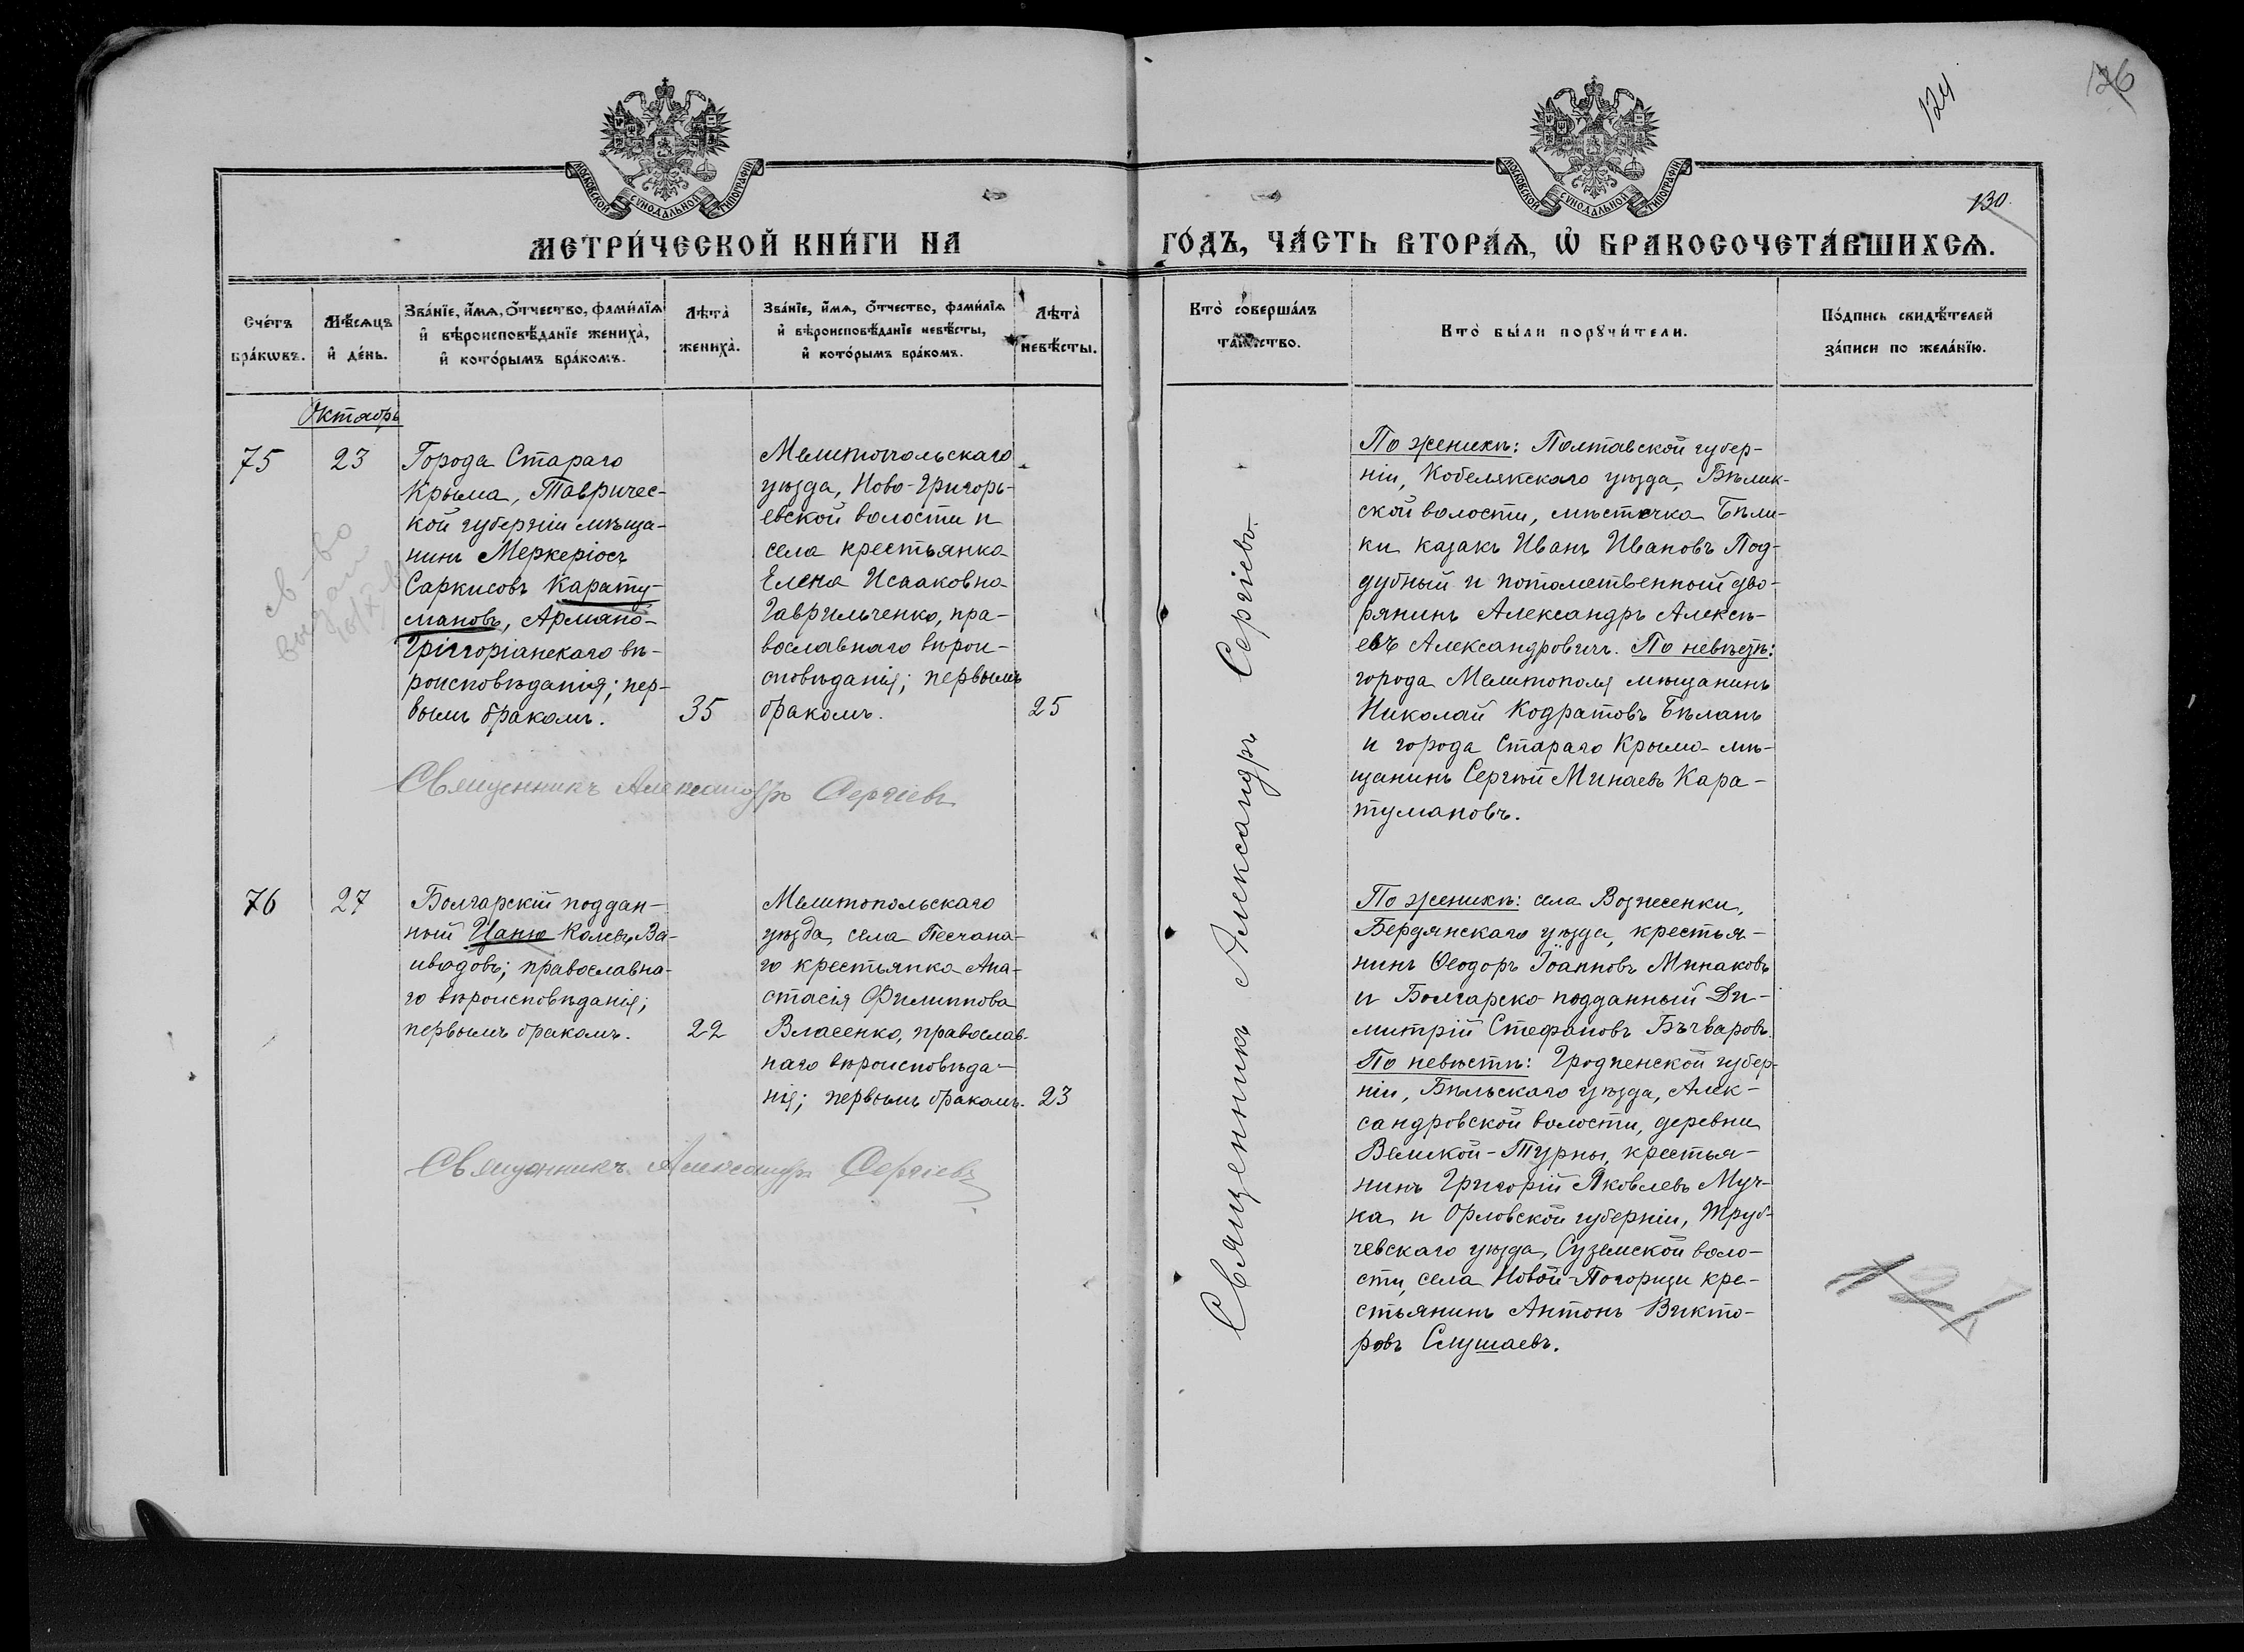 124
126
МОСКОВСКОЙ СѴНОДАЛЬНОЙ ТИПОГРАФІИ
МОСКОВСКОЙ СѴНОДАЛЬНОЙ ТИПОГРАФІИ
130.
МЕТРИ́ЧЕСКОЙ КНИ́ГИ НА
ГО́ДЪ, ЧА́СТЬ ВТОРА́Ѧ, Ѽ БРАКОСОЧЕТА́ВШИХСѦ.
Сче́тъ
бра́кѡвъ.
Мѣ́сяцъ
и҆ де́нь.
Зва́нїе, и҆́мѧ, о҆́тчество, фами́лїѧ
и҆ вѣроисповѣ́данїе жениха̀,
и҆ кото́рымъ бра́комъ.
Лѣта̀
жениха̀.
Зва́нїе, и҆́мѧ, о҆́тчество, фами́лїѧ
и҆ вѣроисповѣ́данїе невѣ́сты,
и҆ кото́рымъ бра́комъ.
Лѣта̀
невѣ́сты.
Кто̀ соверша́лъ
та́инство.
Кто̀ бы́ли порꙋчи́тели.
По́дпись свидѣ́телей
за́писи по жела́нїю.
Октябрь
75
23
Города Стараго
Крыма, Тавричес-
кой губерніи мѣща-
нинъ Меркеріосъ
Саркисовъ Карату-
мановъ, Армяно-
Григоріанскаго вѣ-
роисповѣданія; пер-
вымъ бракомъ.
35
Мелитопольскаго
уѣзда, Ново-Григорь-
евской волости и
села крестьянка
Елена Исааковна
Гаврильченко, пра-
вославнаго вѣрои-
сповѣданія; первымъ
бракомъ.
25
св-во
выдан
Священникъ Александръ Сергіевъ
По женихѣ: Полтавской губер-
ніи, Кобелякскаго уѣзда, Бѣлик-
ской волости, мѣстечка Бѣли-
ки казакъ Иванъ Ивановъ Под-
дубный и потомственный дво-
рянинъ Александръ Алексѣ-
евъ Александровичъ. По невѣстѣ:
города Мелитополя мѣщанинъ
Николай Кодратовъ Бѣланъ
и города Стараго Крыма мѣ-
щанинъ Сергѣй Минаевъ Кара-
тумановъ.
76
27
Болгарскій поддан-
ный Цаню Колевъ Ва-
ивадовъ; православна-
го вѣроисповѣданія;
первымъ бракомъ.
22
Мелитопольскаго
уѣзда, села Песчана-
го крестьянка Ана-
стасія Филиппова
Власенко, православ-
наго вѣроисповѣда-
нія; первымъ бракомъ.
23
Священникъ Александръ Сергіевъ
Священникъ Александръ Сергіевъ.
По женихѣ: села Вознесенки,
Бердянскаго уѣзда, крестья-
нинъ Ѳеодоръ Іоанновъ Минаковъ
и Болгарско-подданный Ди-
митрій Стефановъ Бъчваровъ.
По невѣстѣ: Гродненской губер-
ніи, Бѣльскаго уѣзда, Алек-
сандровской волости, деревни
Великой-Турны, крестья-
нинъ Григорій Яковлевъ Муч-
ка и Орловской губерніи, Труб-
чевскаго уѣзда, Суземской воло-
сти, села Новой-Погорищи кре-
стьянинъ Антонъ Викто-
ровъ Слушаевъ.